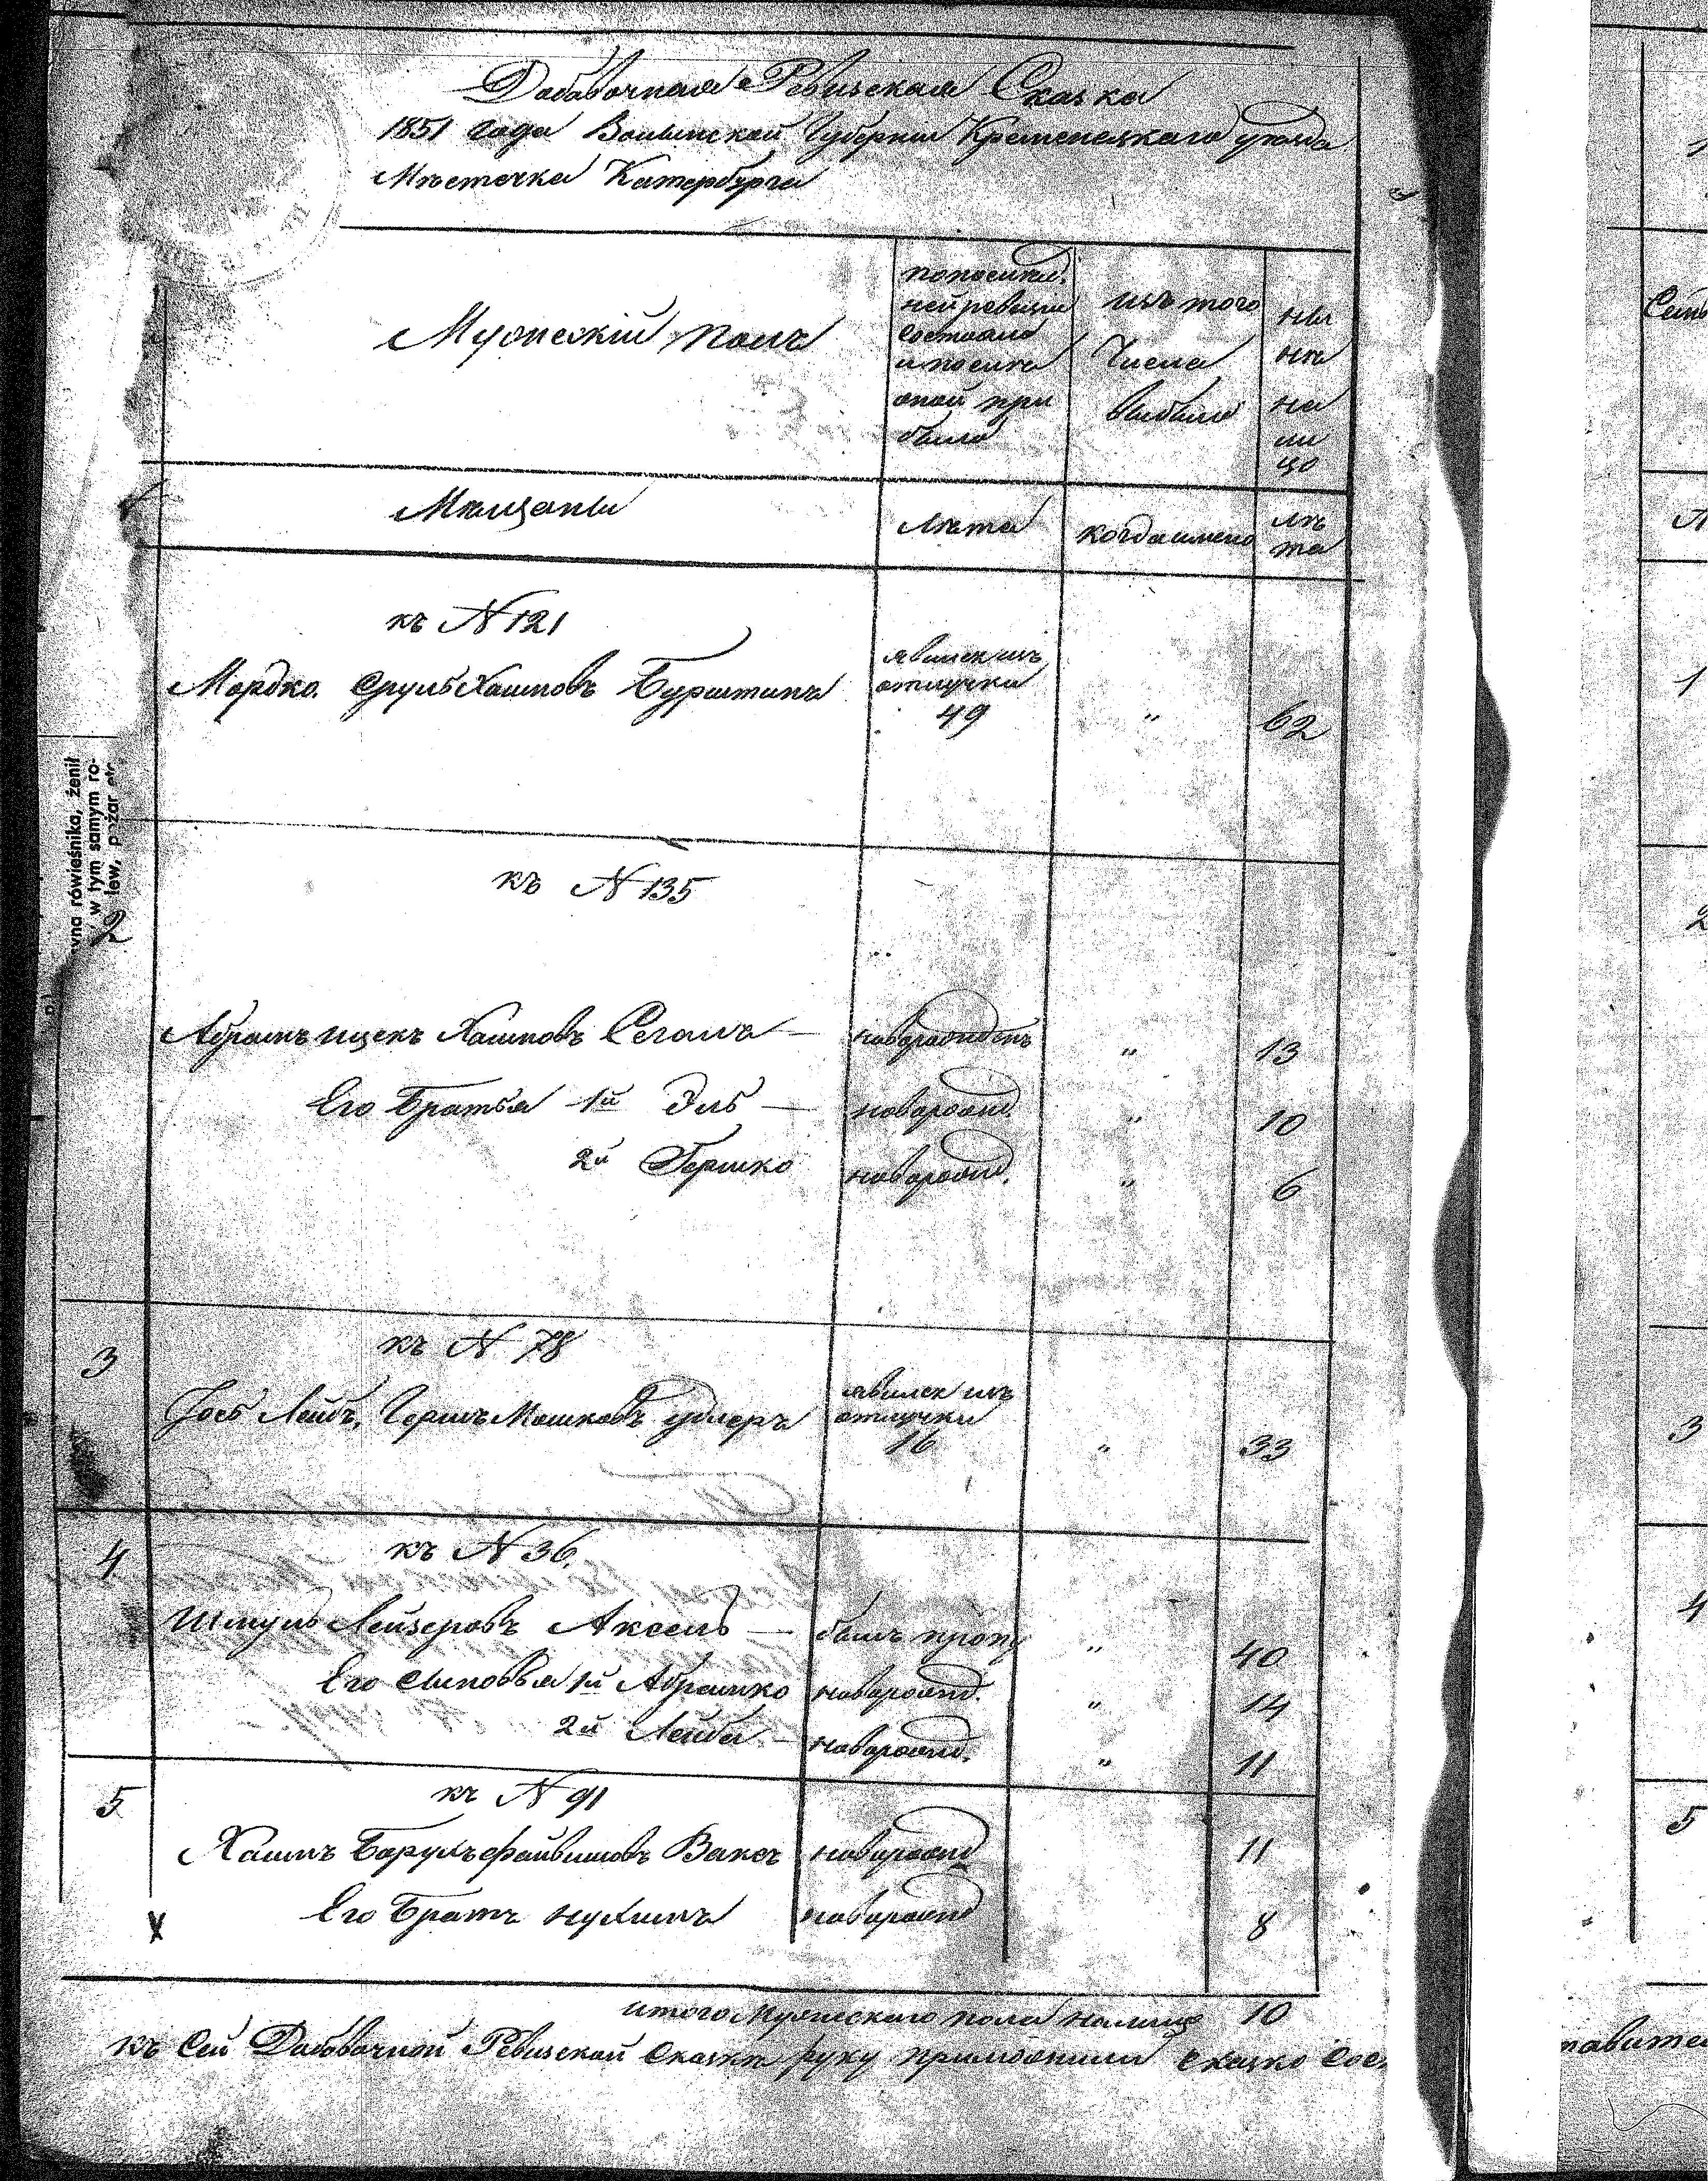 Добавочная Ревизская Сказка
1851 года Волынской Губернии Кременецкаго уѣзда
Мѣстечка Катербурга
Мужескій полъ
по послѣд.
ней ревизіи
состояло
и послѣ
оной при
было
изъ того
Числа
выбыло
ны
нѣ
на
ли
цо
Мѣщаны
Лѣта
когда имено
лѣ
та
къ N 121
Мордко Срулъ Хаимовъ Бурштинъ
явился изъ
отлучки
49
"
62
yna rówieśnika, żenił
w tym samym ro-
lew,
2
къ N 135
Абрамъ Ицекъ Хаимовъ Сегалъ —
новорожден
"
13
Его Братья 1й Эль —
новорожд.
"
10
2й Гершко
новорожд.
"
6
3
къ N 78
Іось Лейбъ, Гершъ Мошковъ Удлеръ
явился изъ
отлучки
16
"
33
4
къ N 36.
Шмуль Лейзеровъ Аксель —
былъ проп
"
40
Его Сыновья 1й Абрамко
новорожд.
"
14
2й Лейба —
новорожд.
"
11
5
къ N 91
Хаимъ Борухъ Файвишовъ Ваксъ
новорожд
11
Его Братъ Нухимъ
новорожд
8
X
итого Мужескаго пола налицо 10
къ Сей Добовачной Ревизской Сказки руку приложили Сказко
1
2
3
4
5